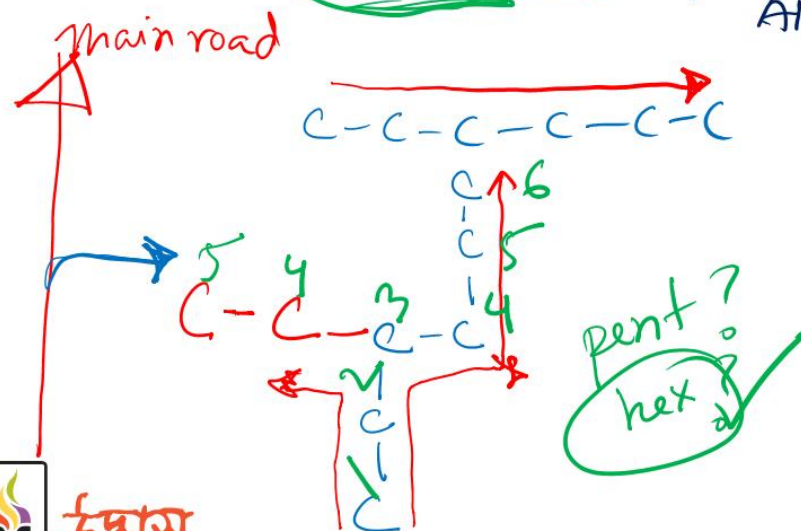 main road
Al
C - C - C - C - C - C
C 6
C 5
5 4 3 4
C - C - C - C
2
C
1
C
pent ?
hex ?